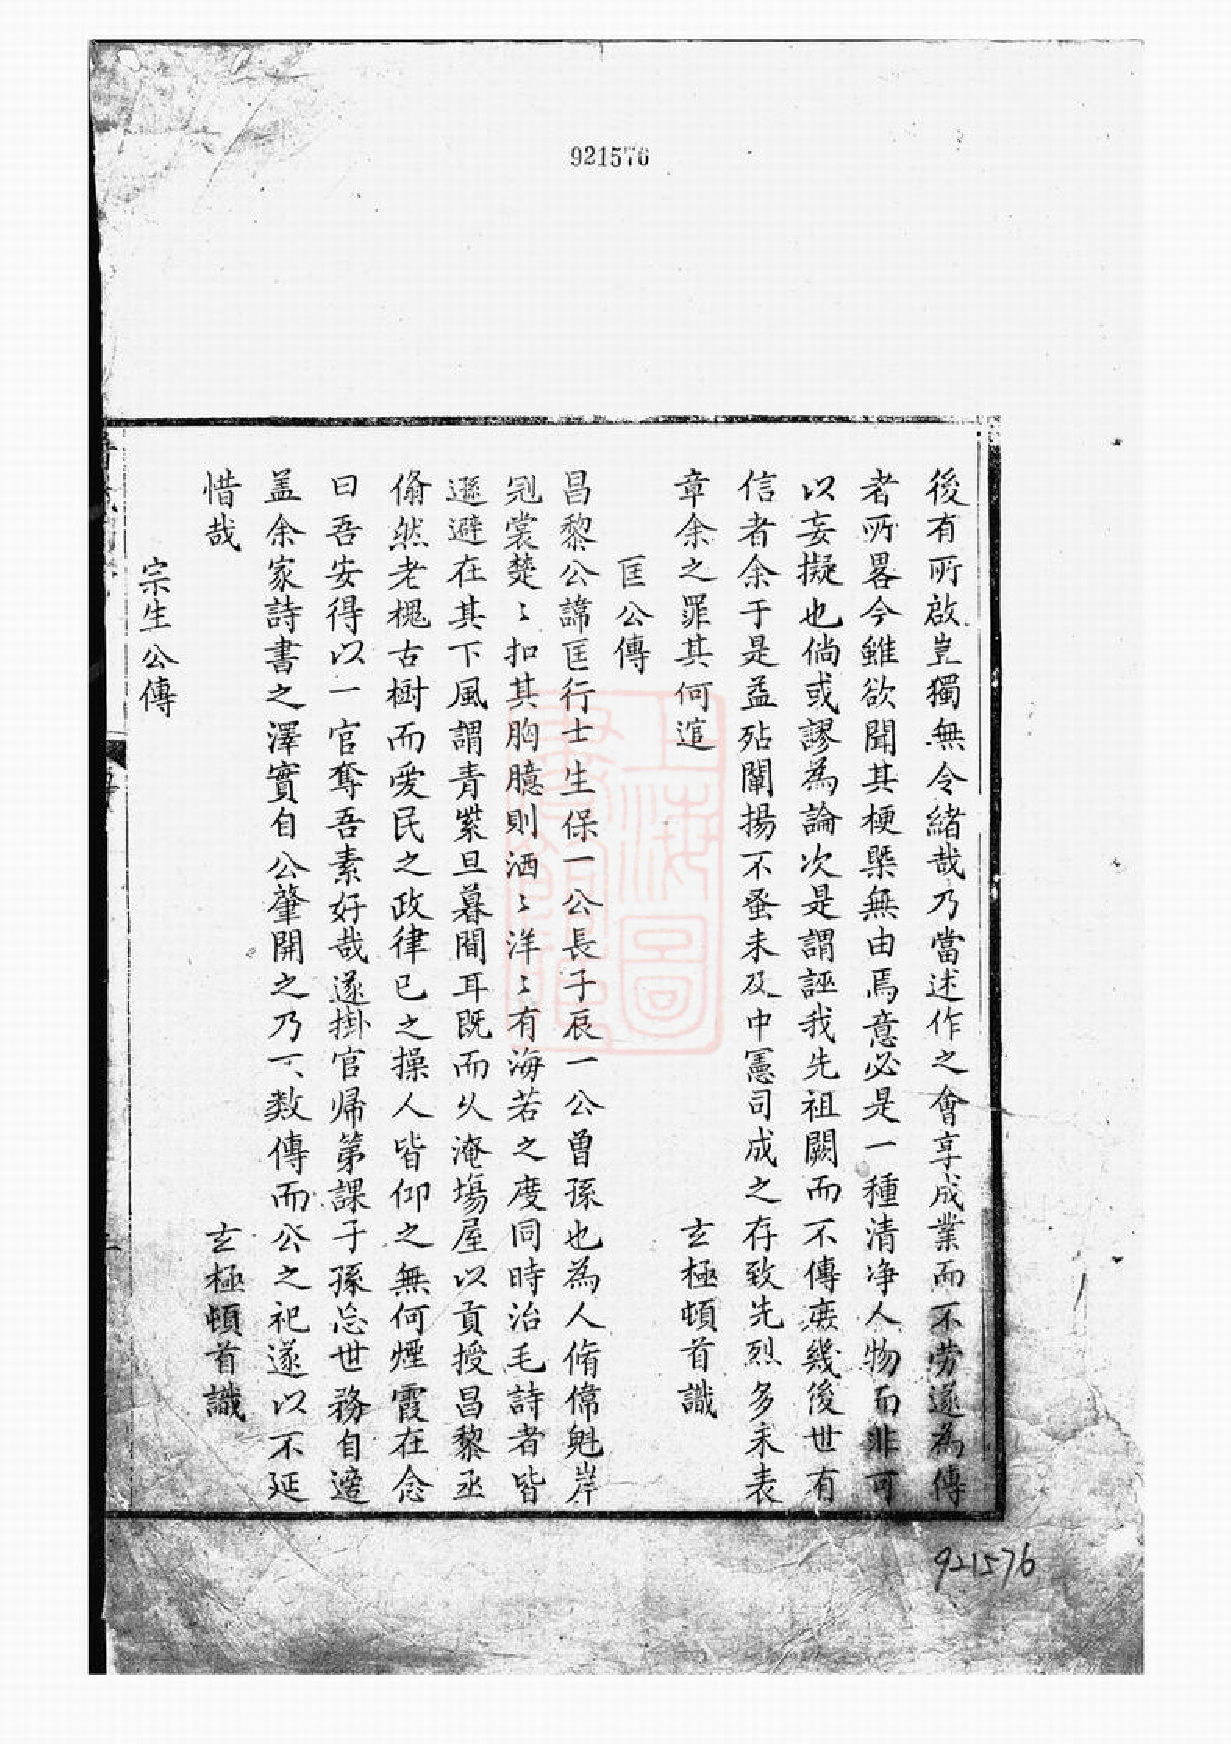 921576
後有所啟豈獨無令緒哉乃當述作之會享成業而不劳遂為傳
者所畧今雖欲聞其梗槩無由焉意必是一種清净人物而非可
以妄擬也倘或謬為論次是謂誣我先祖闕而不傳庶幾後世有
信者余于是益殆闡揚不蚤未及中憲司成之存致先烈多未表
章余之罪其何逭 玄極頓首識
匡公傳
昌黎公諱匡行士生保一公長子辰一公曾孫也為人脩偉魁岸
冠裳楚〻扣其胸臆則洒〻洋〻有海若之度同時治毛詩者皆
遜避在其下風謂青紫旦暮間耳既而久淹塲屋以貢授昌黎丞
翛然老槐古樹而愛民之政律已之操人皆仰之無何煙霞在念
曰吾安得以一官奪吾素好哉遂掛官帰第課子孫忘世務自適
盖余家詩書之澤實自公肇開之乃一数傳而公之祀遂以不延
惜哉 玄極頓首識
宗生公傳
上海圖
921576